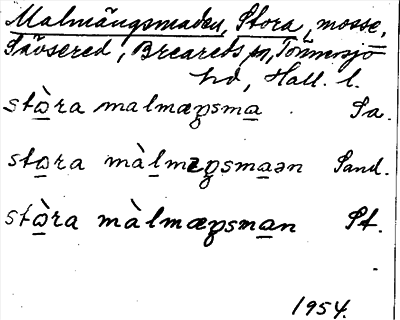 Malmängsmaden, Stora, mosse,
Sävsered, Breareds sn, Tönnersjö
hd, Hall. l.
stòra malmæŋsma Sa.
stora màlmæŋsmaən Sand.
stòra màlmæŋsman St.
1954.